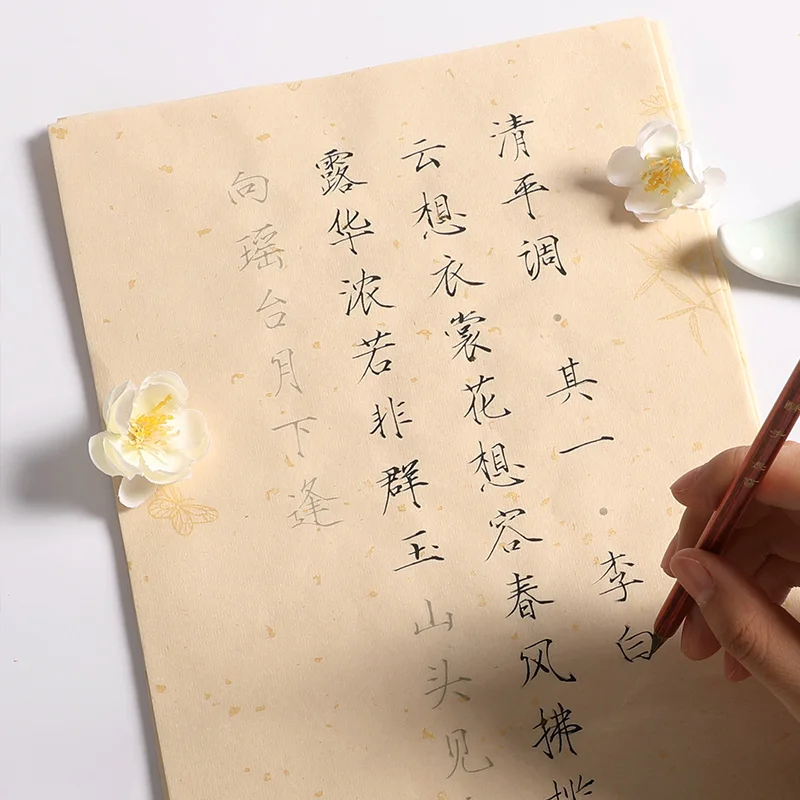 清平调·其一·李白
云想衣裳花想容春风拂
露华浓若非群玉山头见
向瑶台月下逢